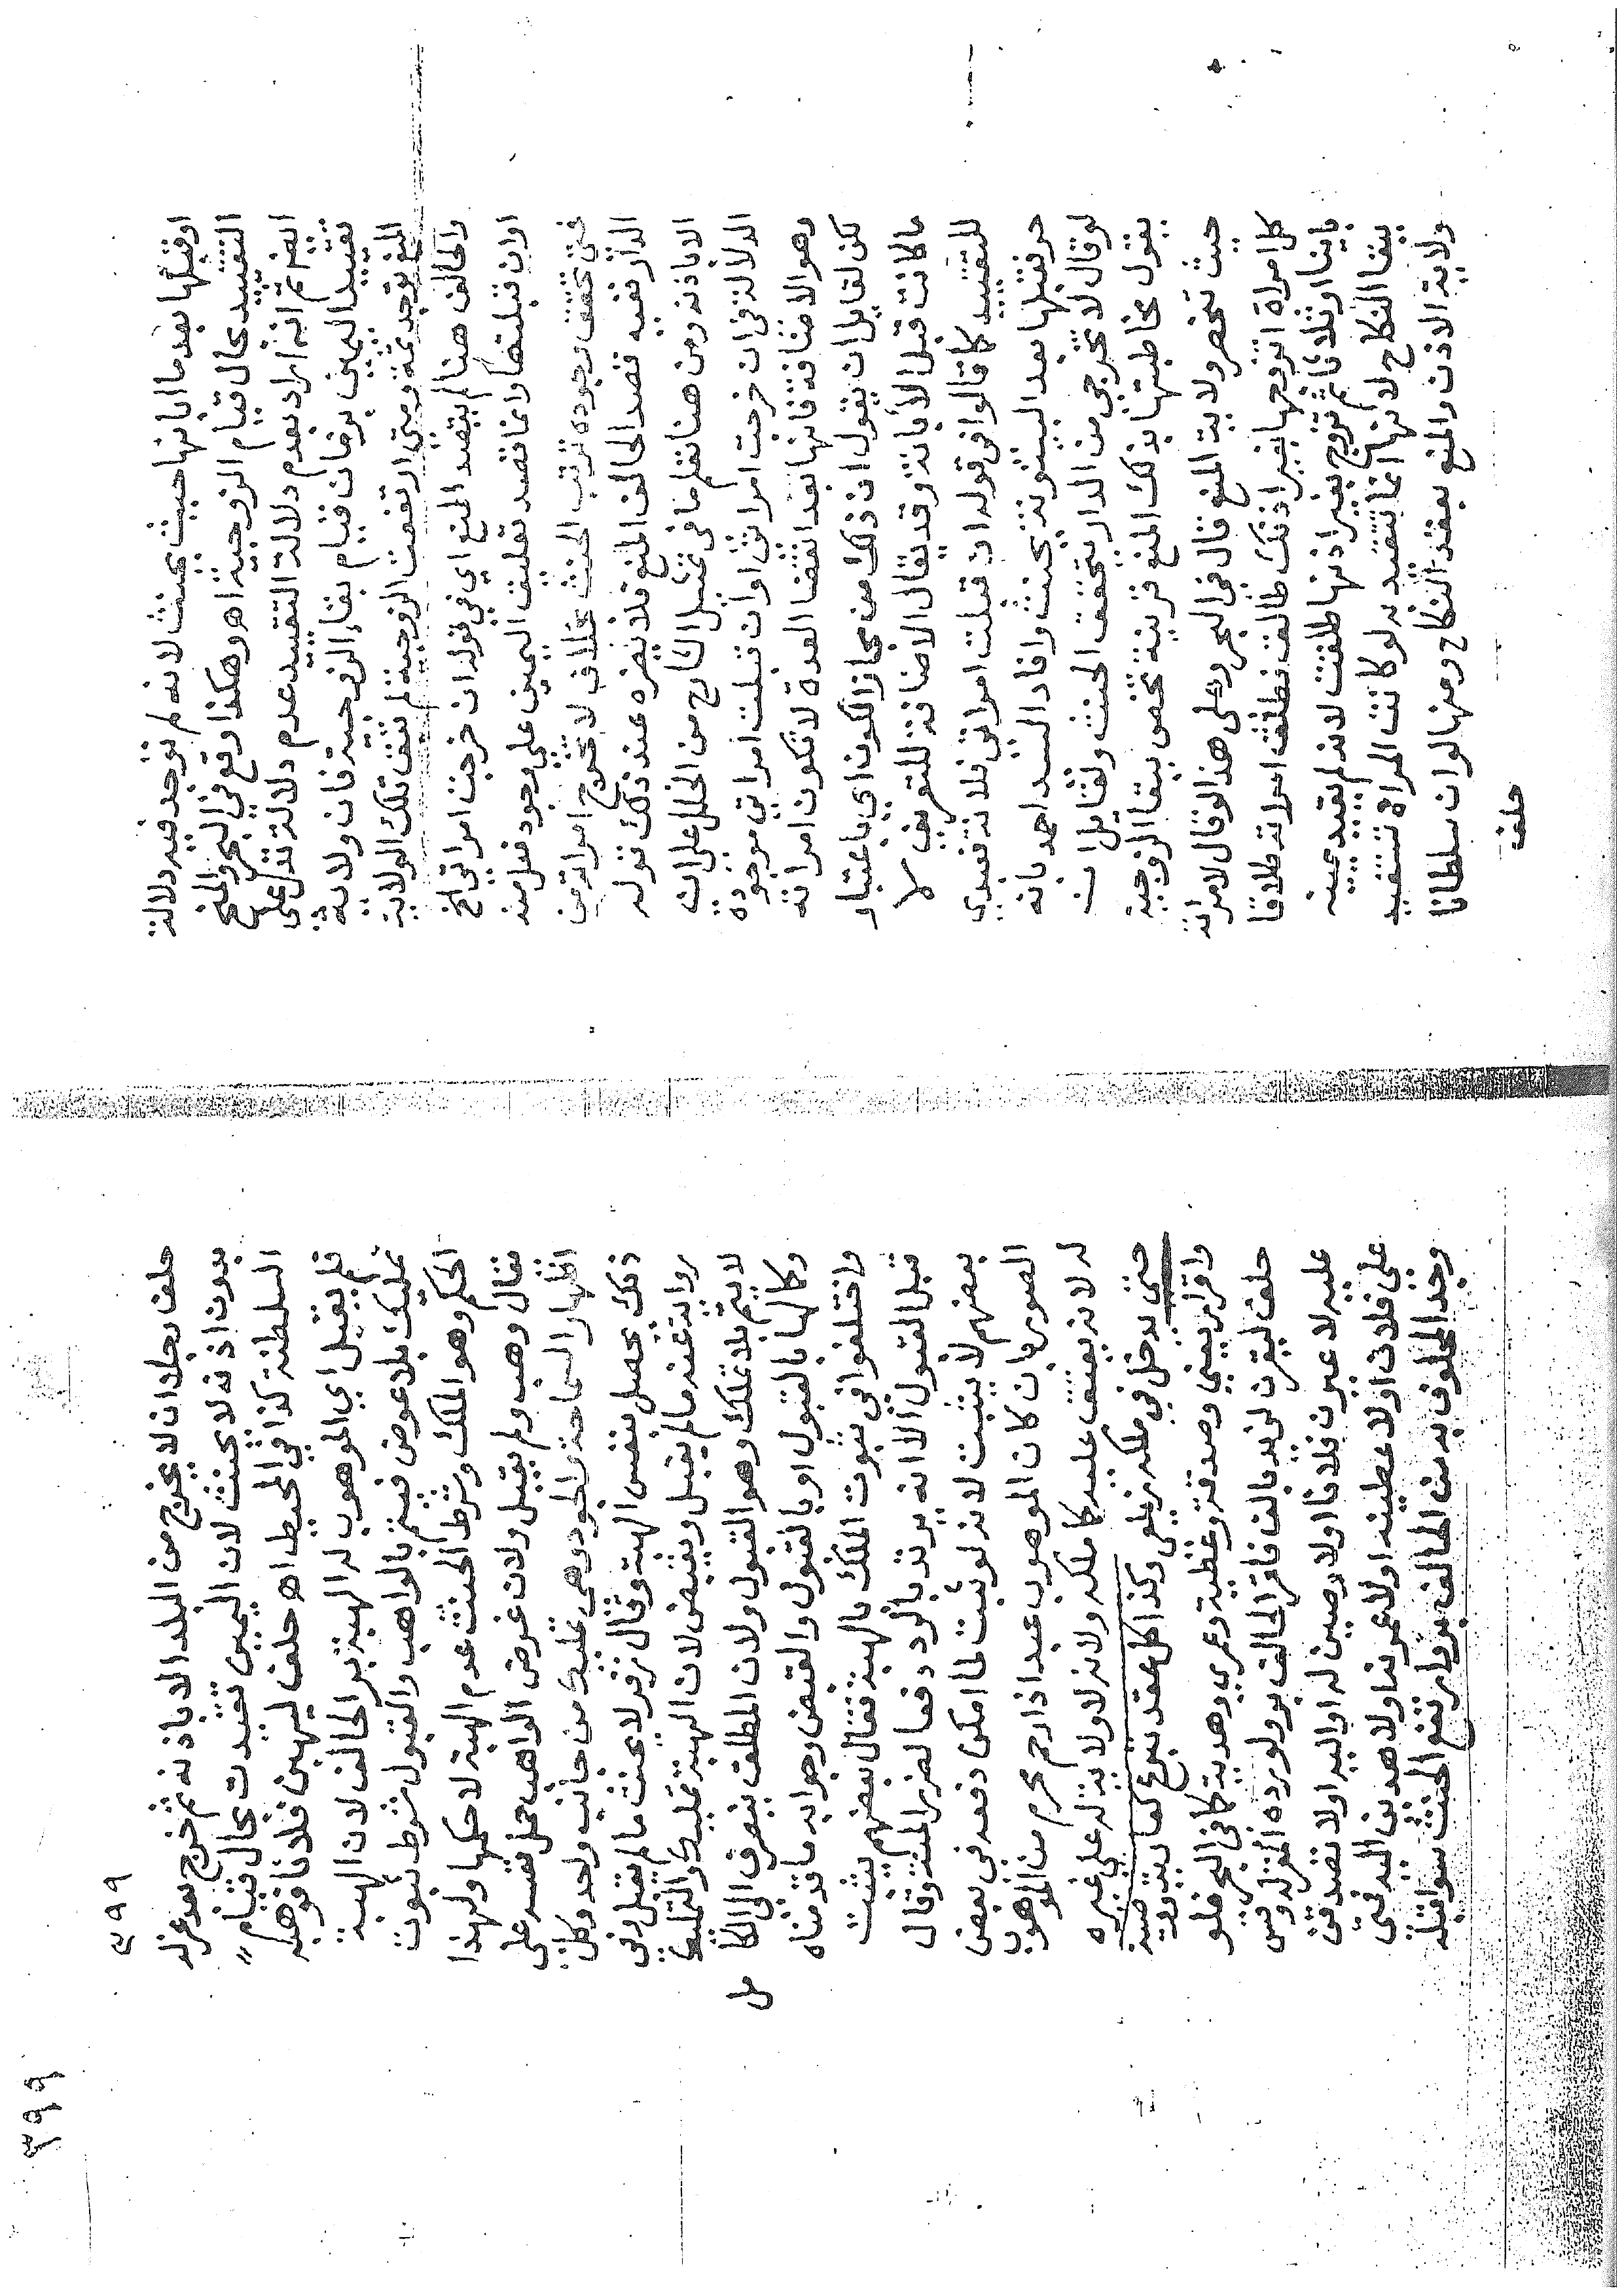 اوقبلها بعدما ابانها حيث يحنث لانه لم توجد فيه دلالة
التقييد بحال قيام الزوجية اهـ وهكذا وقع في البحر والمنح
الفهم ثم انه اراد بعدم دلالة التقييد عدم دلالة تدل على
تقييد اليمين بزمان قيام بقاء الزوجية فان ولاية
المنع توجد ثمة ومتى ارتفعت الزوجية لم تبق تلك الولاية
والحالف هنا لم يقصد المنع اي في قوله ان خرجت امراتي الخ
اوان قبلتها وانما قصد تعليق اليمين على وجود فعل منه
فتى تحقق وجوده ترتب الحنث بخلاف لا تخرج امراته من
الدار نفيه قصد الحالف المنع فلا يغره عند ذلك قوله
الا باذنه ومن هنا تعلم ما في تمثيل الشارح من الخلل على ان
الدلالة في ان خرجت امراتي اوان قبلت امراتي موجوده
وهو الاضافة فانها بعد انقضا العدة لا تكون امراته
لكن لقايل ان يقول ان ذلك من مجاز الكون اي باعتبار
ما كانت قبل الابانة وقد يقال الاضافة للتعريف لا
للتقييد كما قالوا في قوله ان قبلت امراتي فلانة فعبدي
حر فقبلها بعد البينونة يحنث وافاد السيد احمد بانه
لو قال لا تخرجي من الدار يتحقق الحنث ولقايل ان
يقول مخاطبتها بذلك المنع قرينة تختص ببقا الزوجية
حيث تحضر ولاية المنع قال في البحر وعلى هذا لو قال لامراته
كل امراة اتزوجها بغير اذنك طالق فطلق امراته طلاقا
باينا او ثلاثا ثم تزوج بغير اذنها طلقت لانه لم يقيد يمينه
ببقا النكاح لانها انما تتقيد به لو كانت المراة تستفيد
ولاية الاذن والمنع بعقد النكاح ومنها لو ان سلطانا
حلف
٣٩٩
٣٩٩
حلف رجلا ان لا يخرج من البلد الا باذنه ثم خرج بعد عزله
بدون اذنه لا يحنث لان اليمين تقيدت بحال قيام
السلطنة كذا في المحيط اهـ حلف ليهبن فلانا فوهبه
فلم يقبل اي الموهوب له الهبة بر الحالف لان الهبة
تمليك بلا عوض فيتم بالواهب والقبول شرط ثبوت
الحكم وهو الملك وشرط الحنث عدم الهبة لا حكمها ولهذا
يقال وهب ولم يقبل ولان غرض الواهب حمل نفسه على
اظهار السماحة والجود وهي تمليك من جانب واحد وكل
ذلك يحصل بنفس الهبة وقال زفر لا يحنث ما لم يقبل وفي
رواية عنه ما لم يقبل ويقبض لان الهبة تمليك والتمليك
لا يتم بلا تملك وهو القبول ولان المطلق ينصرف الى الكامل
وكمالها بالقبول او بالقبول والقبض وجوابه ما قدمناه
واختلفوا في ثبوت الملك بالهبة فقال بعضهم يثبت
قبل القبول الا انه يرتد بالرد دفعا لضرر المنة وقال
بعضهم لا يثبت لانه لو ثبت لما امكن دفعه في بعض
الصور بان كان الموهوب عبدا ذا رحم محرم من الموهوب
له لانه يعتق عليه كما ملكه ولانه لا ولاية له على غيره
حتى يدخل في ملكه زيلعي وكذا كل عقد تبرع كعارية ووصية
واقرار يعني وصدقة وعطية وعمرى وهدية كما في البحر فلو
حلف ليقرن لزيد بالف فاقر الحالف بر ولو رده المقر له وقس
عليه لاعيرن فلانا او لاوصين له او اليه او لاتصدقن
على فلان او لاعطينه او لاعمرنه او لاهدين اليه فمتى
وجد المحلوف به من الحالف بر وارتفع الحنث سوا قبله